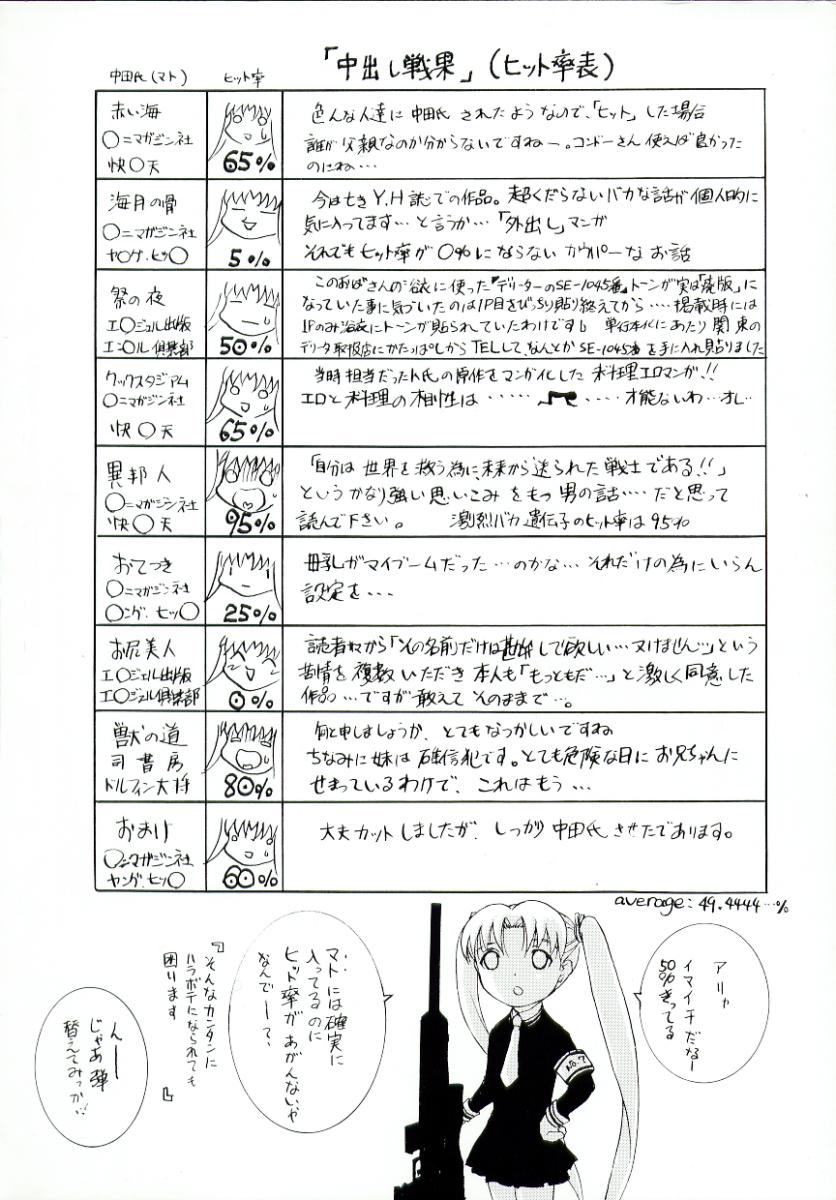 「中出し戦果」（ヒット率表）
中田氏（マト）
ヒット率
赤い海
〇ニマガジン社
快〇天
65%
色んな人達に中田氏されたようなので、「ヒット」した場合
誰が父親なのか分からないですねー。コンドーさん使えば良かった
のにね…
海月の骨
〇ニマガジン社
ヤ〇グ・ヒッ〇
5%
今は亡きY.H誌での作品。超くだらないバカな話が個人的に
気に入ってます…と言うか…「外出し」マンガ
それでもヒット率が0%にならないカウパーなお話
祭の夜
エ〇ジェル出版
エン〇ル倶楽部
50%
このおばさんの浴衣に使った『デリーターのSE-1045番』トーンが実は「廃版」に
なっていた事に気づいたのは1P目をびっちり貼り終えてから…掲載時には
1Pのみ浴衣にトーンが貼られていたわけです。単行本化にあたり関東の
デリータ取扱店にかたっぱしからTELして、なんとかSE-1045番を手に入れ貼りました
クックスタジアム
〇ニマガジン社
快〇天
65%
当時担当だったト氏の原作をマンガ化した料理エロマンガ!!
エロと料理の相性は・・・・・・・・・才能ないわ…オレ…
異邦人
〇ニマガジン社
快〇天
95%
「自分は世界を救う為に、未来から送られた戦士である!!」
というかなり強い思いこみをもつ男の話…だと思って
読んで下さい。 激烈バカ遺伝子のヒット率は95%
おてつき
〇ニマガジン社
〇ング・ヒッ〇
25%
母乳がマイブームだった…のかな…それだけの為にいらん
設定を…
お尻美人
エ〇ジェル出版
エ〇ジェル倶楽部
0%
読者様から「その名前だけは勘弁して欲しい…ヌけません…」という
苦情を複数いただき本人も「もっともだ…」と激しく同意した
作品…ですが敢えてそのままで…。
獣の道
司書房
ドルフィン大将
80%
何と申しましょうか、とてもなつかしいですね
ちなみに妹は確信犯です。とても危険な日にお兄ちゃんに
せまっているわけで、これはもう…
おまけ
〇ニマガジン社
ヤング・ヒッ〇
60%
大丈カットしましたが、しっかり中田氏させたであります。
average: 49.4444…%
アリャ
イマイチだなー
50%きってる
マトには確実に
入ってるのに
ヒット率が
あがんないや
なんでーて、
『そんなカンタンに
ハラボテになられても
困ります』
んーー
じゃあ弾
替えてみっか…